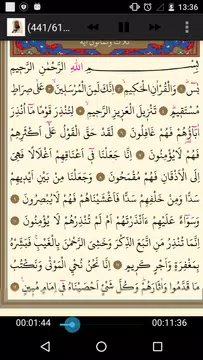 13:36
(441/61...
ثلاث وثمانون آية
بِسْمِ اللهِ الرَّحْمٰنِ الرَّحِيمِ
يٰسٓ وَالْقُرْاٰنِ الْحَكِيمِ اِنَّكَ لَمِنَ الْمُرْسَلِينَ عَلٰى صِرَاطٍ
مُسْتَقِيمٍ تَنْزِيلَ الْعَزِيزِ الرَّحِيمِ لِتُنْذِرَ قَوْمًا مَٓا اُنْذِرَ
اٰبَٓاؤُ۬هُمْ فَهُمْ غَافِلُونَ لَقَدْ حَقَّ الْقَوْلُ عَلٰٓى اَكْثَرِهِمْ
فَهُمْ لَا يُؤْمِنُونَ اِنَّا جَعَلْنَا فِٓى اَعْنَاقِهِمْ اَغْلَالًا فَهِىَ
اِلَى الْاَذْقَانِ فَهُمْ مُقْمَحُونَ وَجَعَلْنَا مِنْ بَيْنِ اَيْدِيهِمْ
سَدًّا وَمِنْ خَلْفِهِمْ سَدًّا فَاَغْشَيْنَاهُمْ فَهُمْ لَا يُبْصِرُونَ
وَسَوَٓاءٌ عَلَيْهِمْ ءَاَنْذَرْتَهُمْ اَمْ لَمْ تُنْذِرْهُمْ لَا يُؤْمِنُونَ
اِنَّمَا تُنْذِرُ مَنِ اتَّبَعَ الذِّكْرَ وَخَشِىَ الرَّحْمٰنَ بِالْغَيْبِ فَبَشِّرْهُ
بِمَغْفِرَةٍ وَاَجْرٍ كَرِيمٍ اِنَّا نَحْنُ نُحْىِ الْمَوْتٰى وَنَكْتُبُ
مَا قَدَّمُوا وَاٰثَارَهُمْ وَكُلَّ شَىْءٍ اَحْصَيْنَاهُ فٓى اِمَامٍ مُبِينٍ
00:01:44
00:11:36